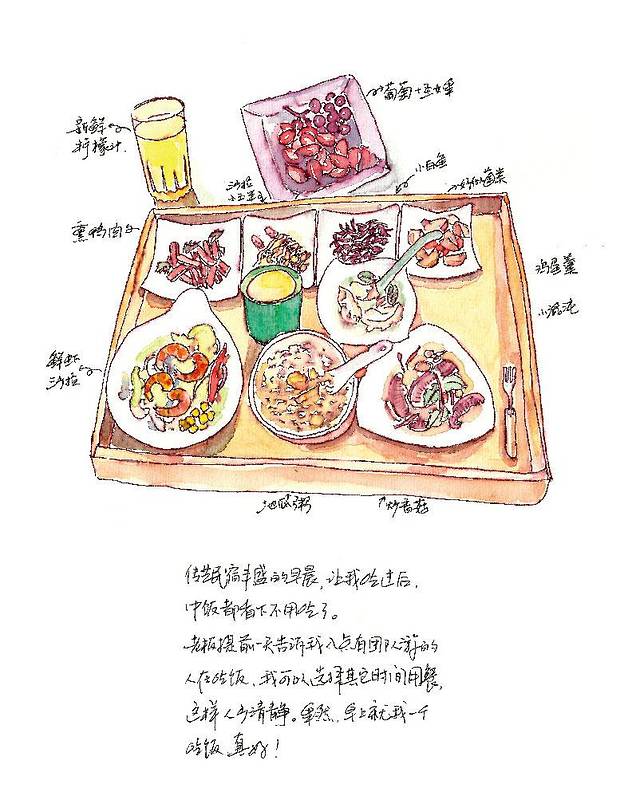 新鲜
柠檬汁
葡萄+圣女果
小白鱼
沙拉
熏鸭肉
鸡蛋羹
小混沌
鲜虾
沙拉
地瓜粥
炒香菇
传芳民宿丰盛的早晨,让我吃过后,
中饭都省下不用吃了。
老板提前一天告诉我八点有团队游的
人在吃饭,我可以选择其它时间用餐,
这样人少清静。果然,早上就我一个
吃饭真好!